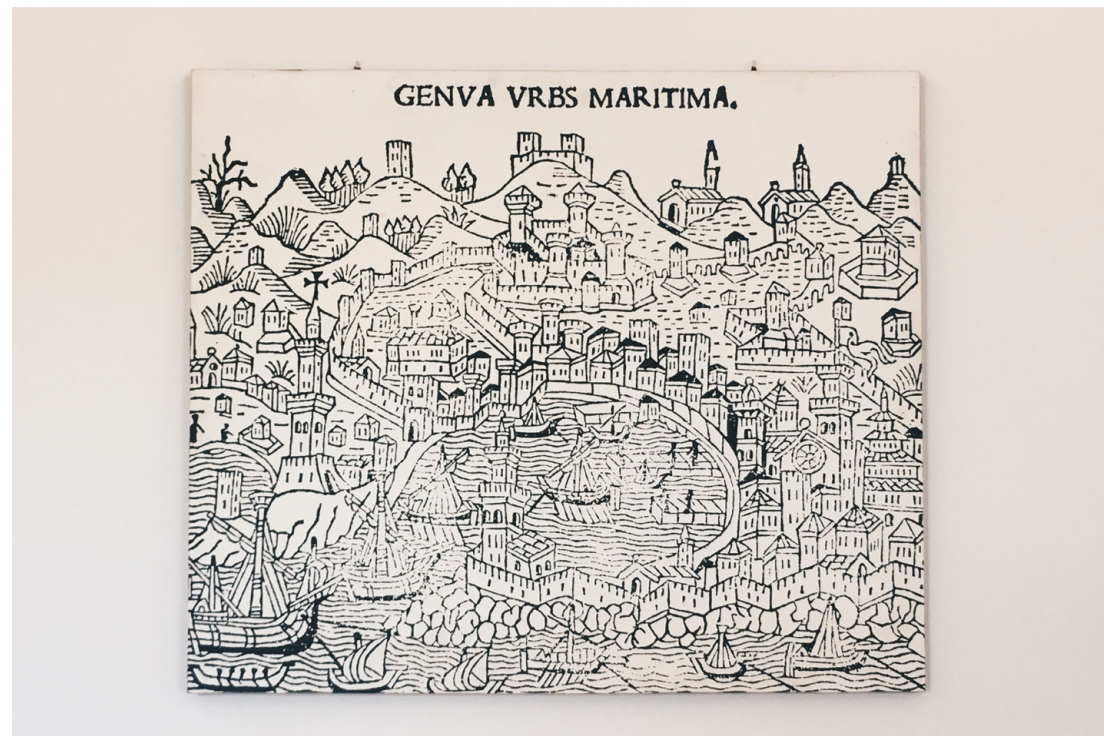 GENVA VRBS MARITIMA.